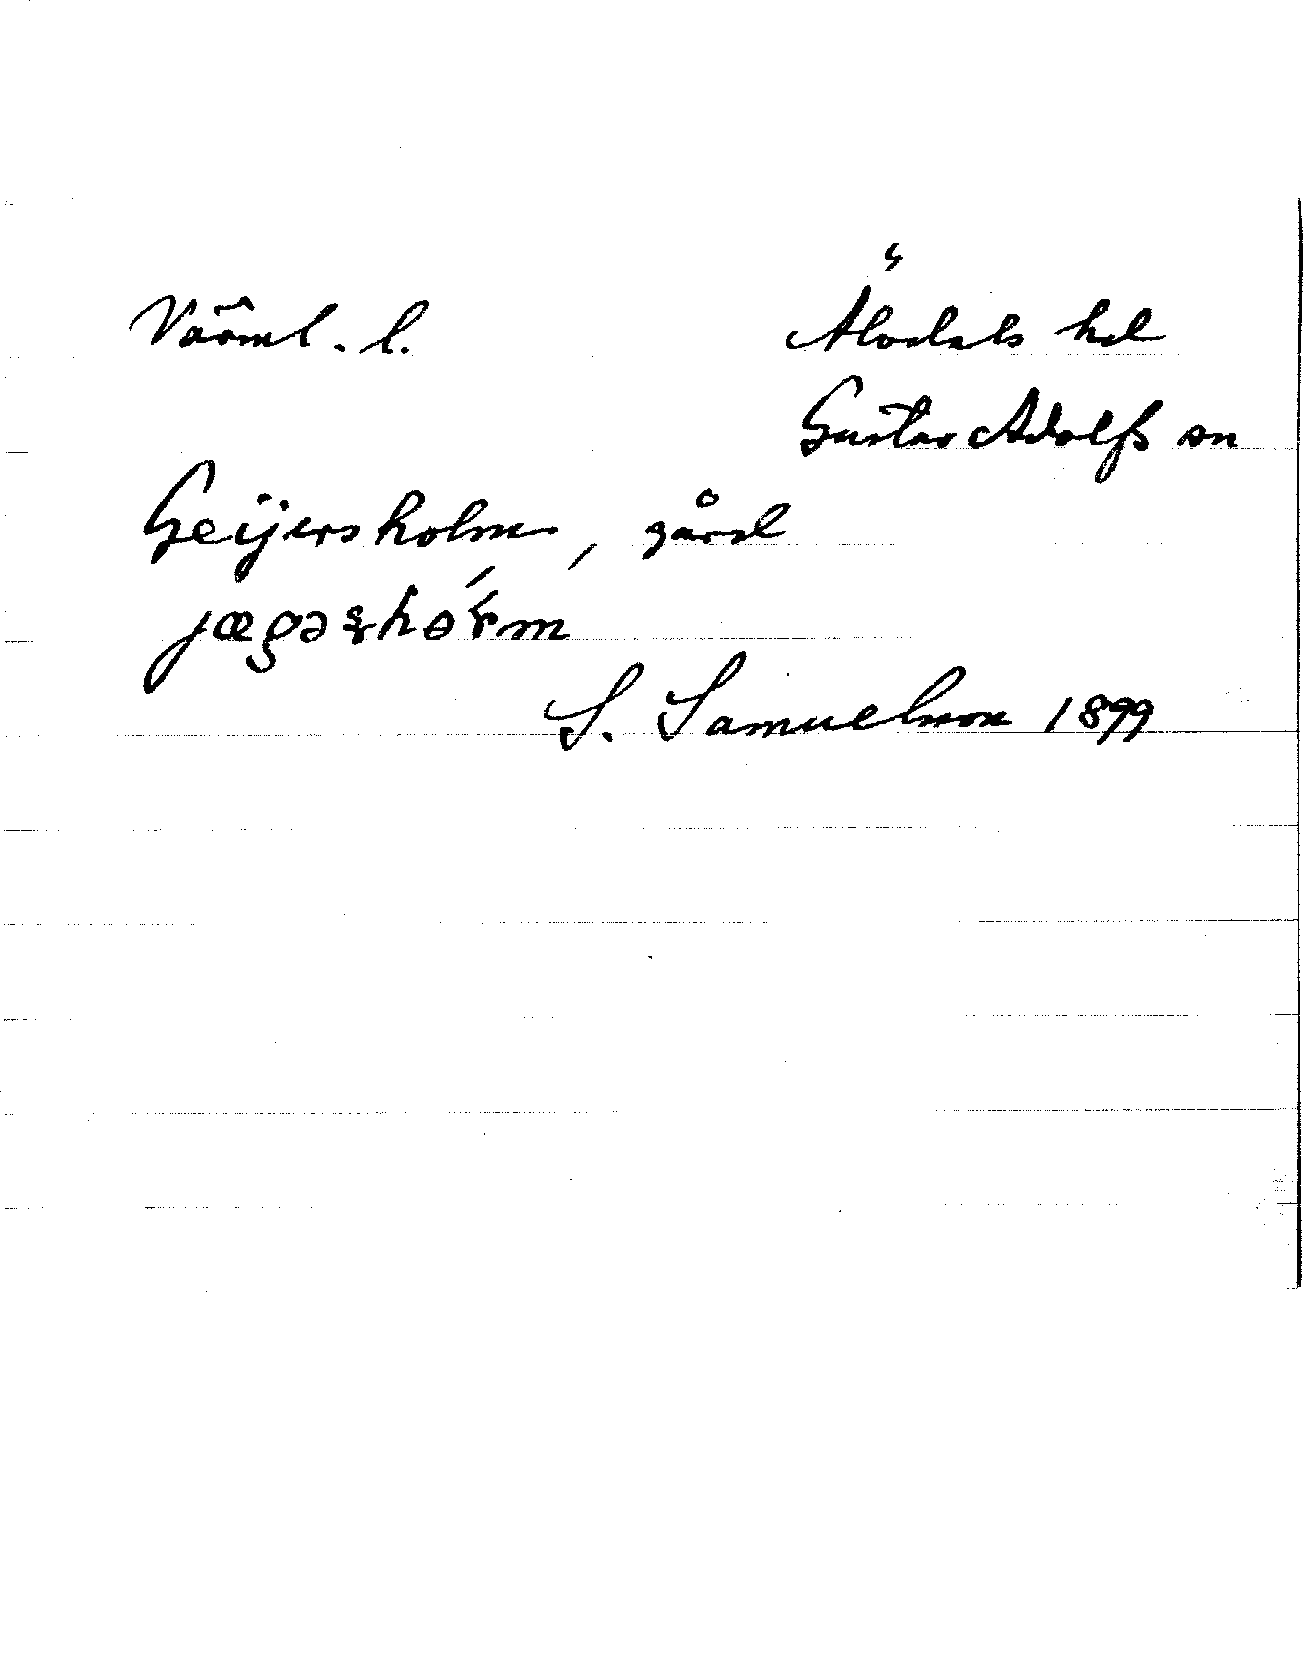 Värml. l.
Älvdals hd
Gustav Adolfs sn
Geijersholm, gård
S. Samuelsson 1899